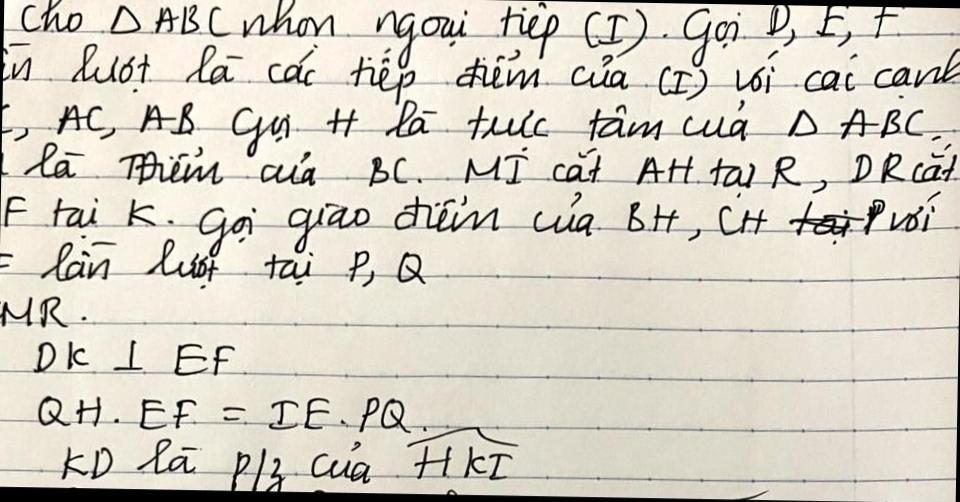 Cho Δ ABC nhọn ngoại tiếp (I). Gọi D, E, F
ần lượt là các tiếp điểm của (I) với các cạnh
C, AC, AB Gọi H là trực tâm của Δ ABC,
là Tđiểm của BC. MI cắt AH tại R, DR cắt
F tại K. Gọi giao điểm của BH, CH với
F lần lượt tại P, Q
MR.
DK ⊥ EF
QH. EF = IE. PQ.
KD là p/g của HKI